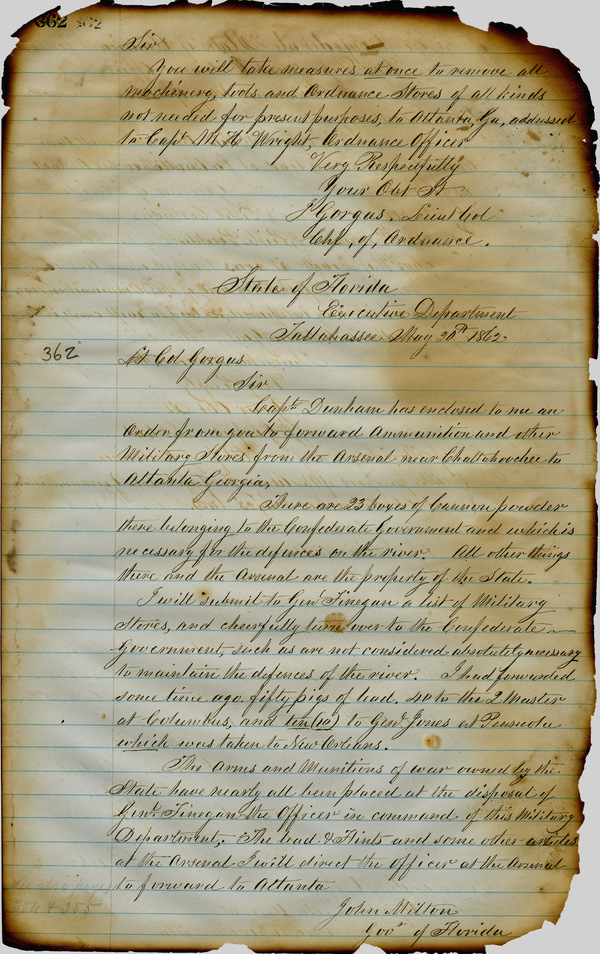 362 362
Sir
You will take measures at once to remove all
machinery, tools and Ordnance Stores of all kinds
not needed for present purposes, to Atlanta, Ga, addressed
to Capt M. H. Wright, Ordnance Officer
Very Respectfully
Your Obt St
J Gorgas, Lieut Col
Chf, of, Ordnance.
State of Florida
Executive Department
Tallahassee May 20th 1862
362
Lt Col Gorgas
Sir
Capt. Dunham has enclosed to me an
Order from you to forward Ammunition and other
Military Stores from the Arsenal near Chattahoochee to
Atlanta Georgia,
There are 23 boxes of Cannon powder
there belonging to the Confederate Government and which is
necessary for the defences on the river. All other things
there and the Arsenal are the property of the State.
I will submit to Genl Finegan a list of Military
Stores, and cheerfully turn over to the Confederate
Government, such as are not considered absolutely necessary
to maintain the defences of the river. I had forwarded
some time ago fifty pigs of lead. 40 to the 2 Master
at Columbus, and ten (10) to Genl Jones at Pensacola
which was taken to New Orleans.
The Arms and Munitions of war owned by the
State have nearly all been placed at the disposal of
Genl Finegan the Officer in command of this Military
Department, The Lead & Flints and some other articles
at the Arsenal I will direct the Officer at the Arsenal
to forward to Atlanta
John Milton
Govr of Florida
see also pages
254 & 255